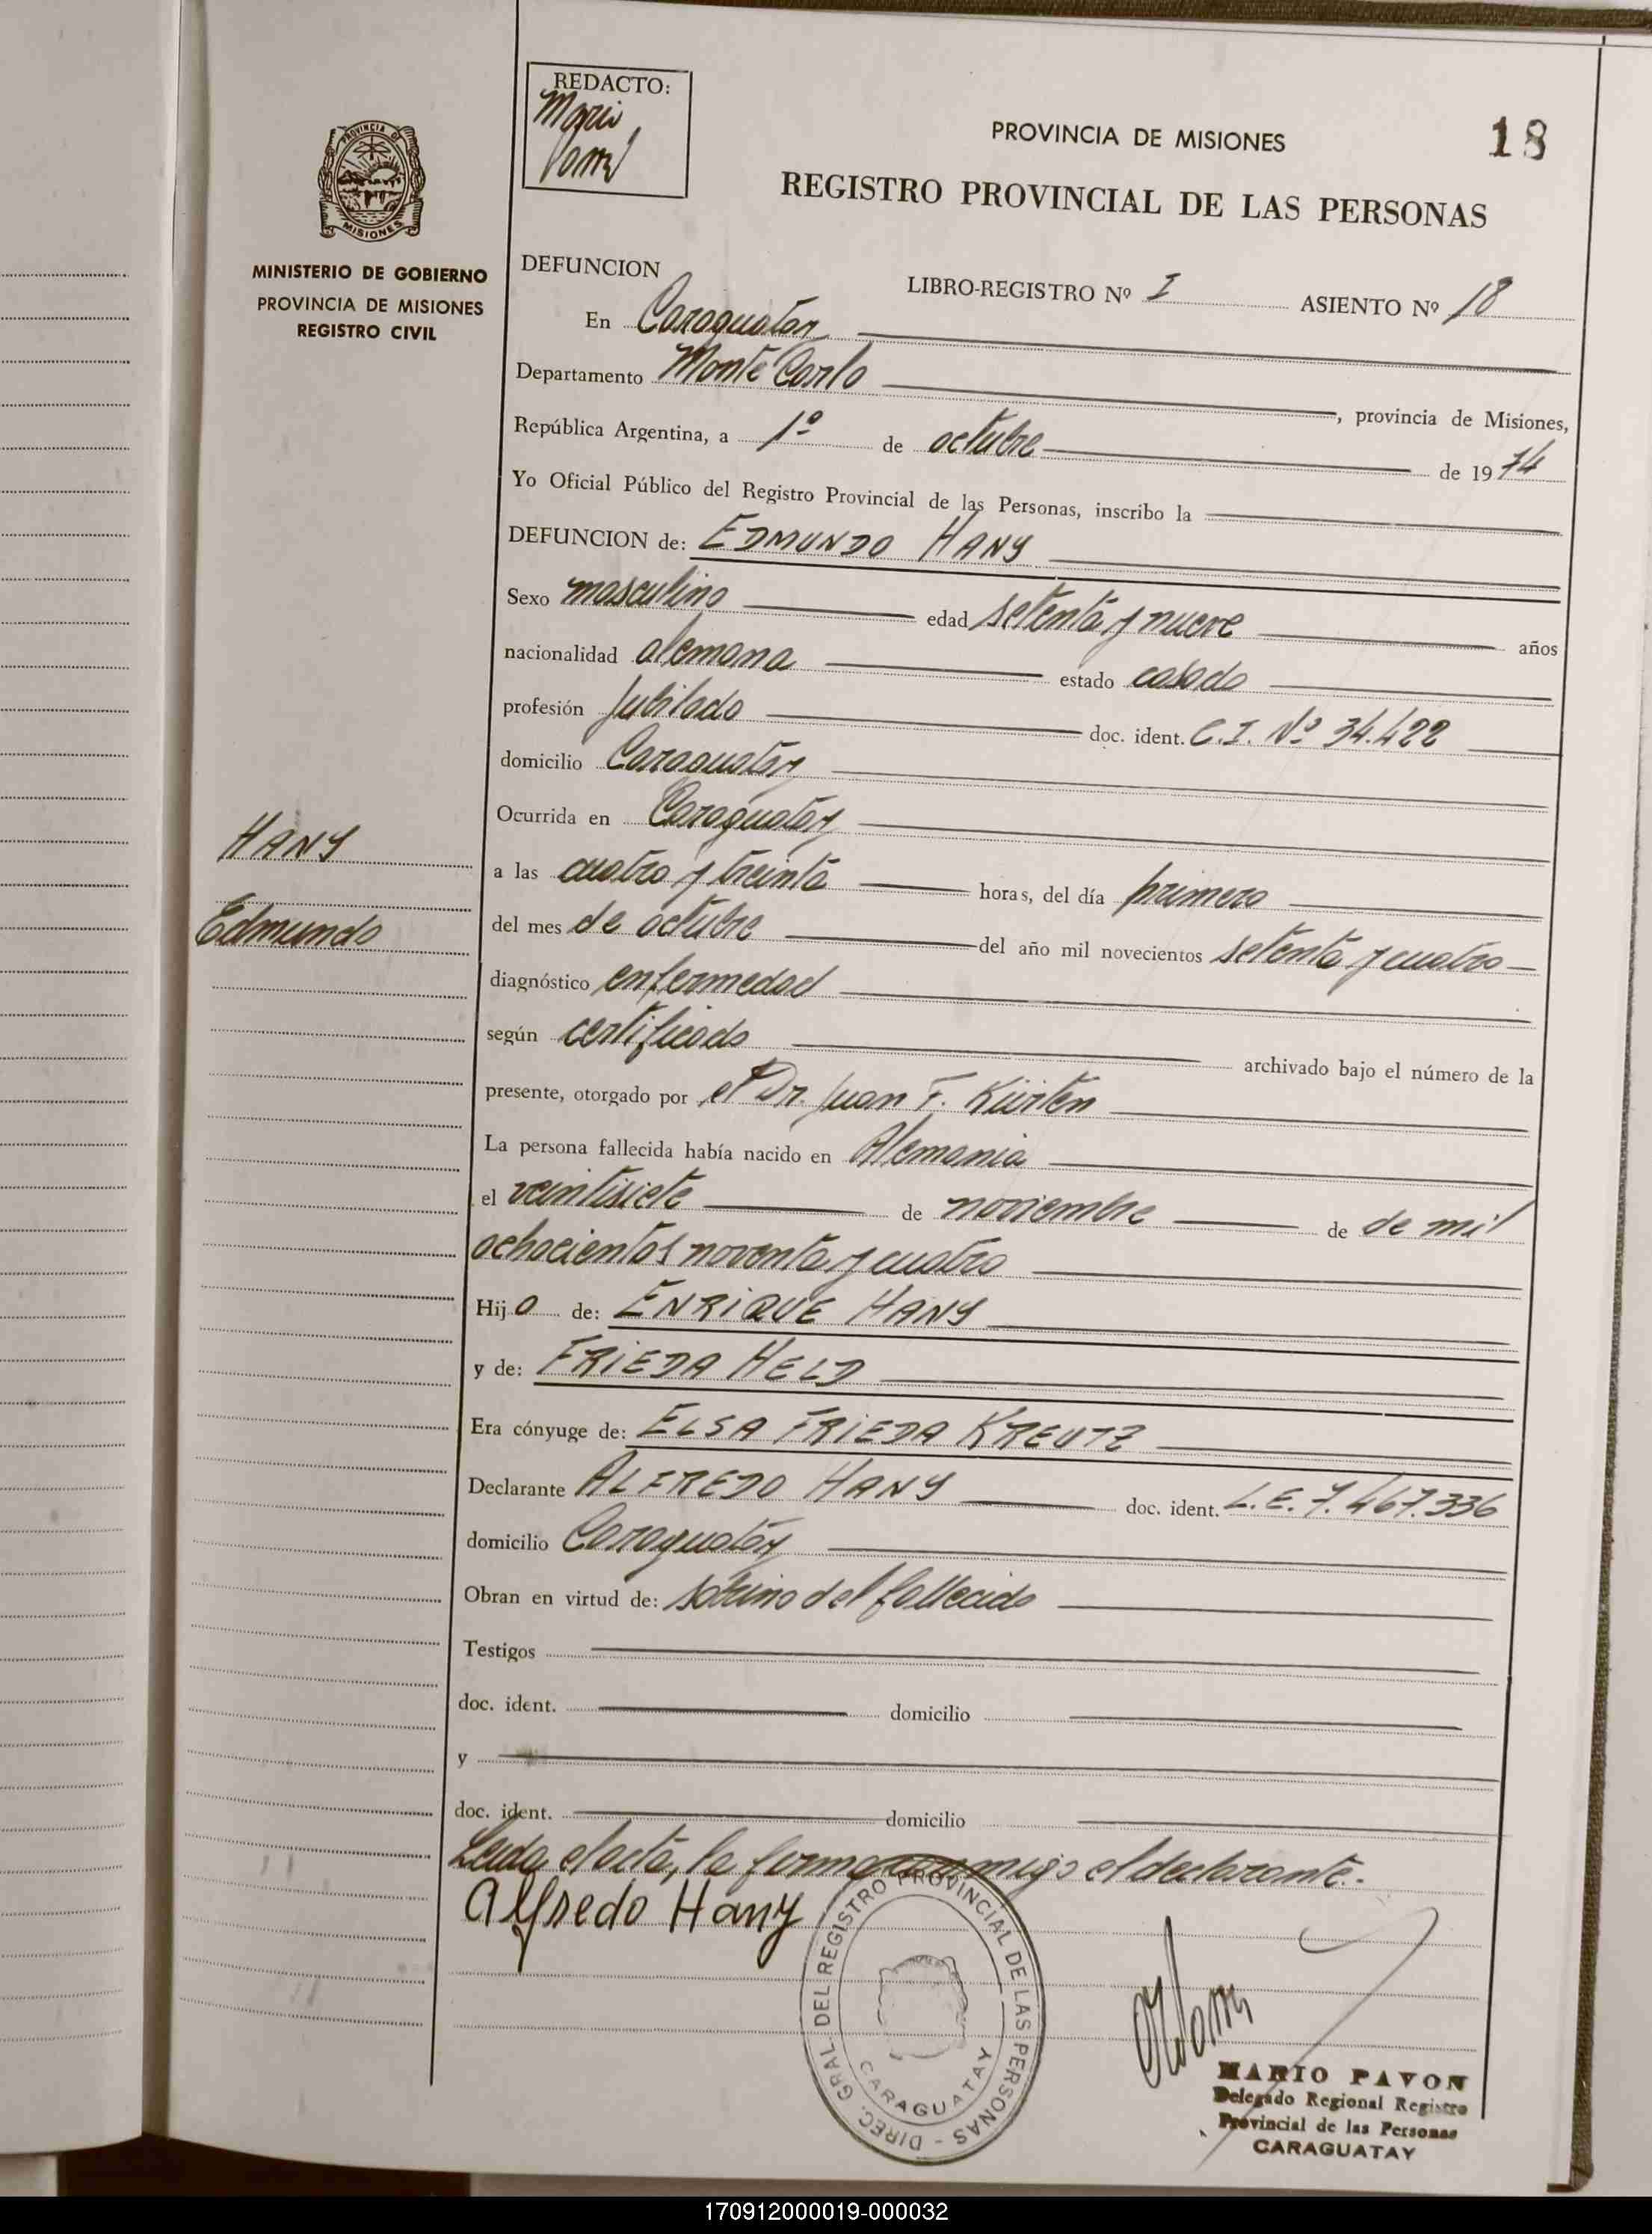 REDACTO:
Mario
PROVINCIA DE MISIONES
18
REGISTRO PROVINCIAL DE LAS PERSONAS
PROVINCIA DE
MISIONES
MINISTERIO DE GOBIERNO
PROVINCIA DE MISIONES
REGISTRO CIVIL
DEFUNCION
LIBRO-REGISTRO Nº I ASIENTO Nº 18
En Caraguatay
Departamento Monte Carlo, provincia de Misiones,
República Argentina, a 1º de octubre de 1974
Yo Oficial Público del Registro Provincial de las Personas, inscribo la
DEFUNCION de: EDMUNDO HANY
Sexo masculino edad setenta y nueve años
nacionalidad alemana estado casado
profesión Jubilado doc. ident. C.I. Nº 34.422
domicilio Caraguatay
Ocurrida en Caraguatay
HANY
a las cuatro y treinta horas, del día primero
Edmundo
del mes de octubre del año mil novecientos setenta y cuatro
diagnóstico enfermedad
según certificado archivado bajo el número de la
presente, otorgado por el Dr. Juan F. Kürten
La persona fallecida había nacido en Alemania
el veintisiete de noviembre de de mil
ochocientos noventa y cuatro
Hijo de: ENRIQUE HANY
y de: FRIEDA HELD
Era cónyuge de: ELSA FRIEDA KREUTZ
Declarante ALFREDO HANY doc. ident. L.E. 7.467.336
domicilio Caraguatay
Obran en virtud de: sobrino del fallecido
Testigos
doc. ident. domicilio
y
doc. ident. domicilio
Leida el acta, la firma conmigo el declarante.-
Alfredo Hany
DIREC. GRAL. DEL REGISTRO PROVINCIAL DE LAS PERSONAS -
CARAGUATAY
MARIO PAVON
Delegado Regional Registro
Provincial de las Personas
CARAGUATAY
170912000019-000032